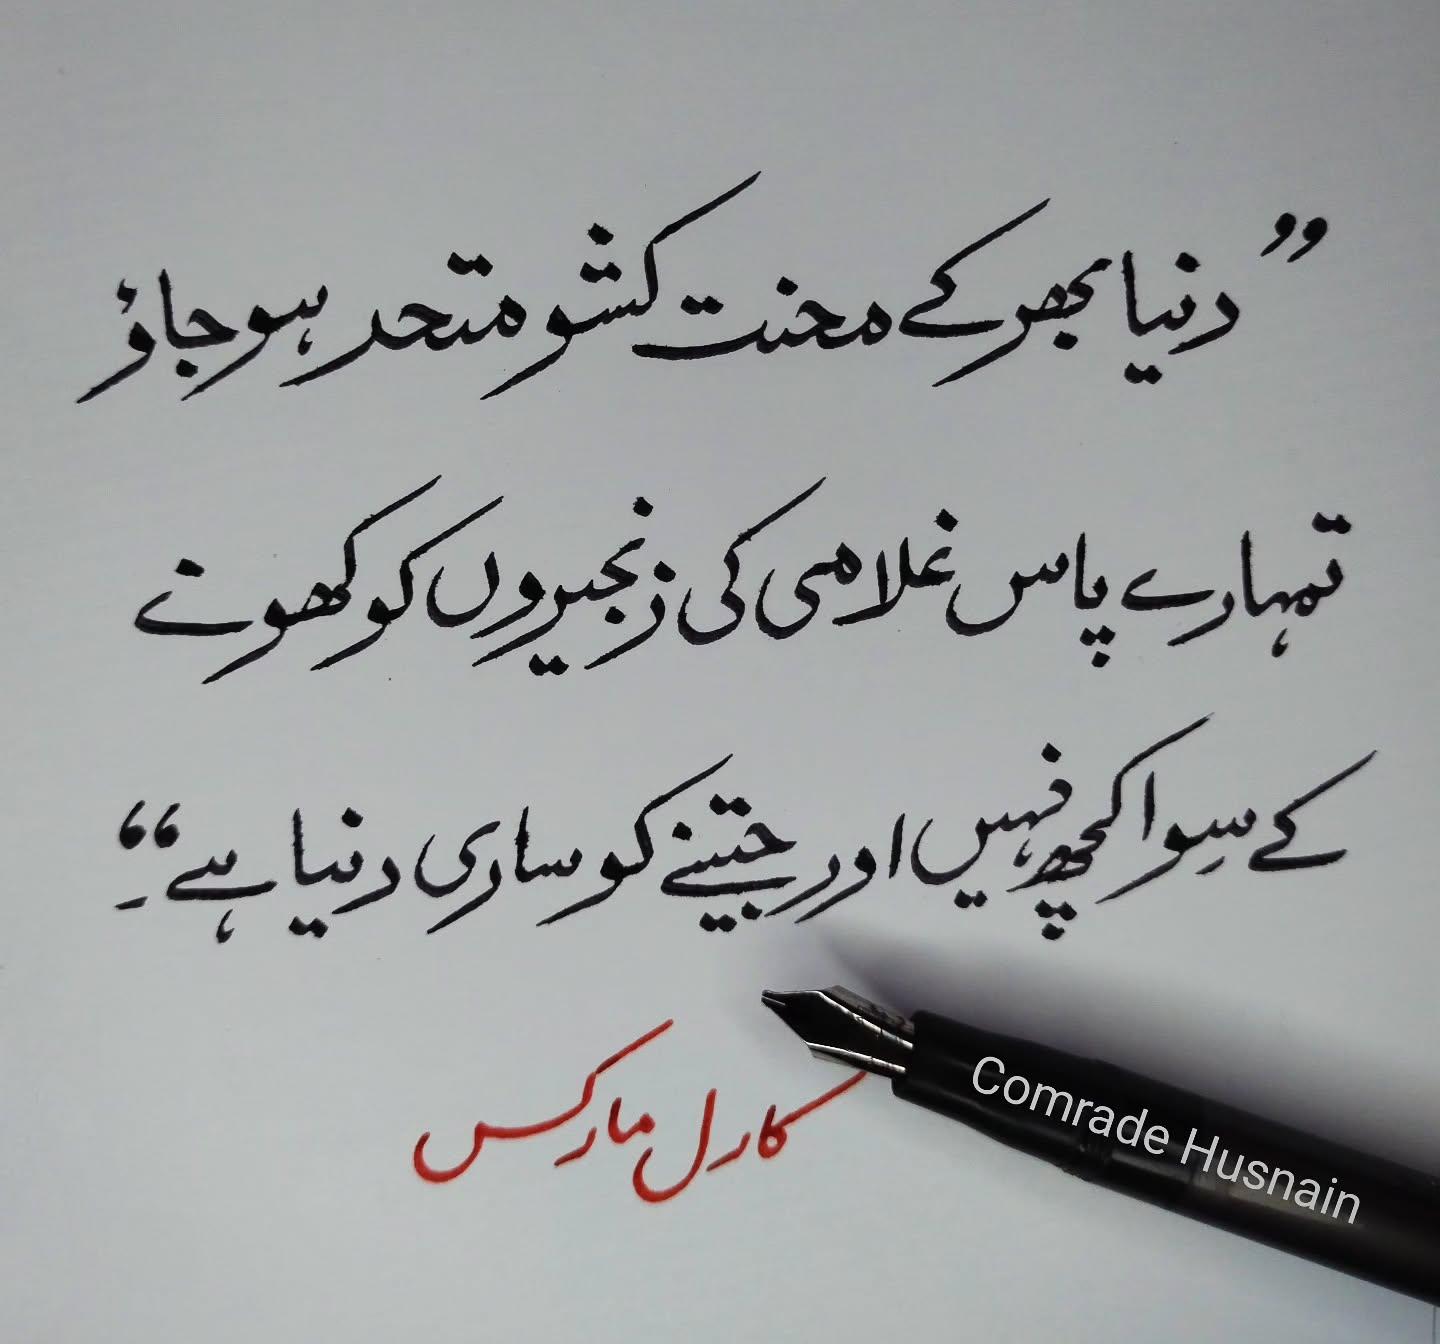 ”دنیا بھر کے محنت کشو متحد ہو جاؤ
تمہارے پاس غلامی کی زنجیروں کو کھونے
کے سِوا کچھ نہیں اور جیتنے کو ساری دنیا ہے“
کارل مارکس
Comrade Husnain